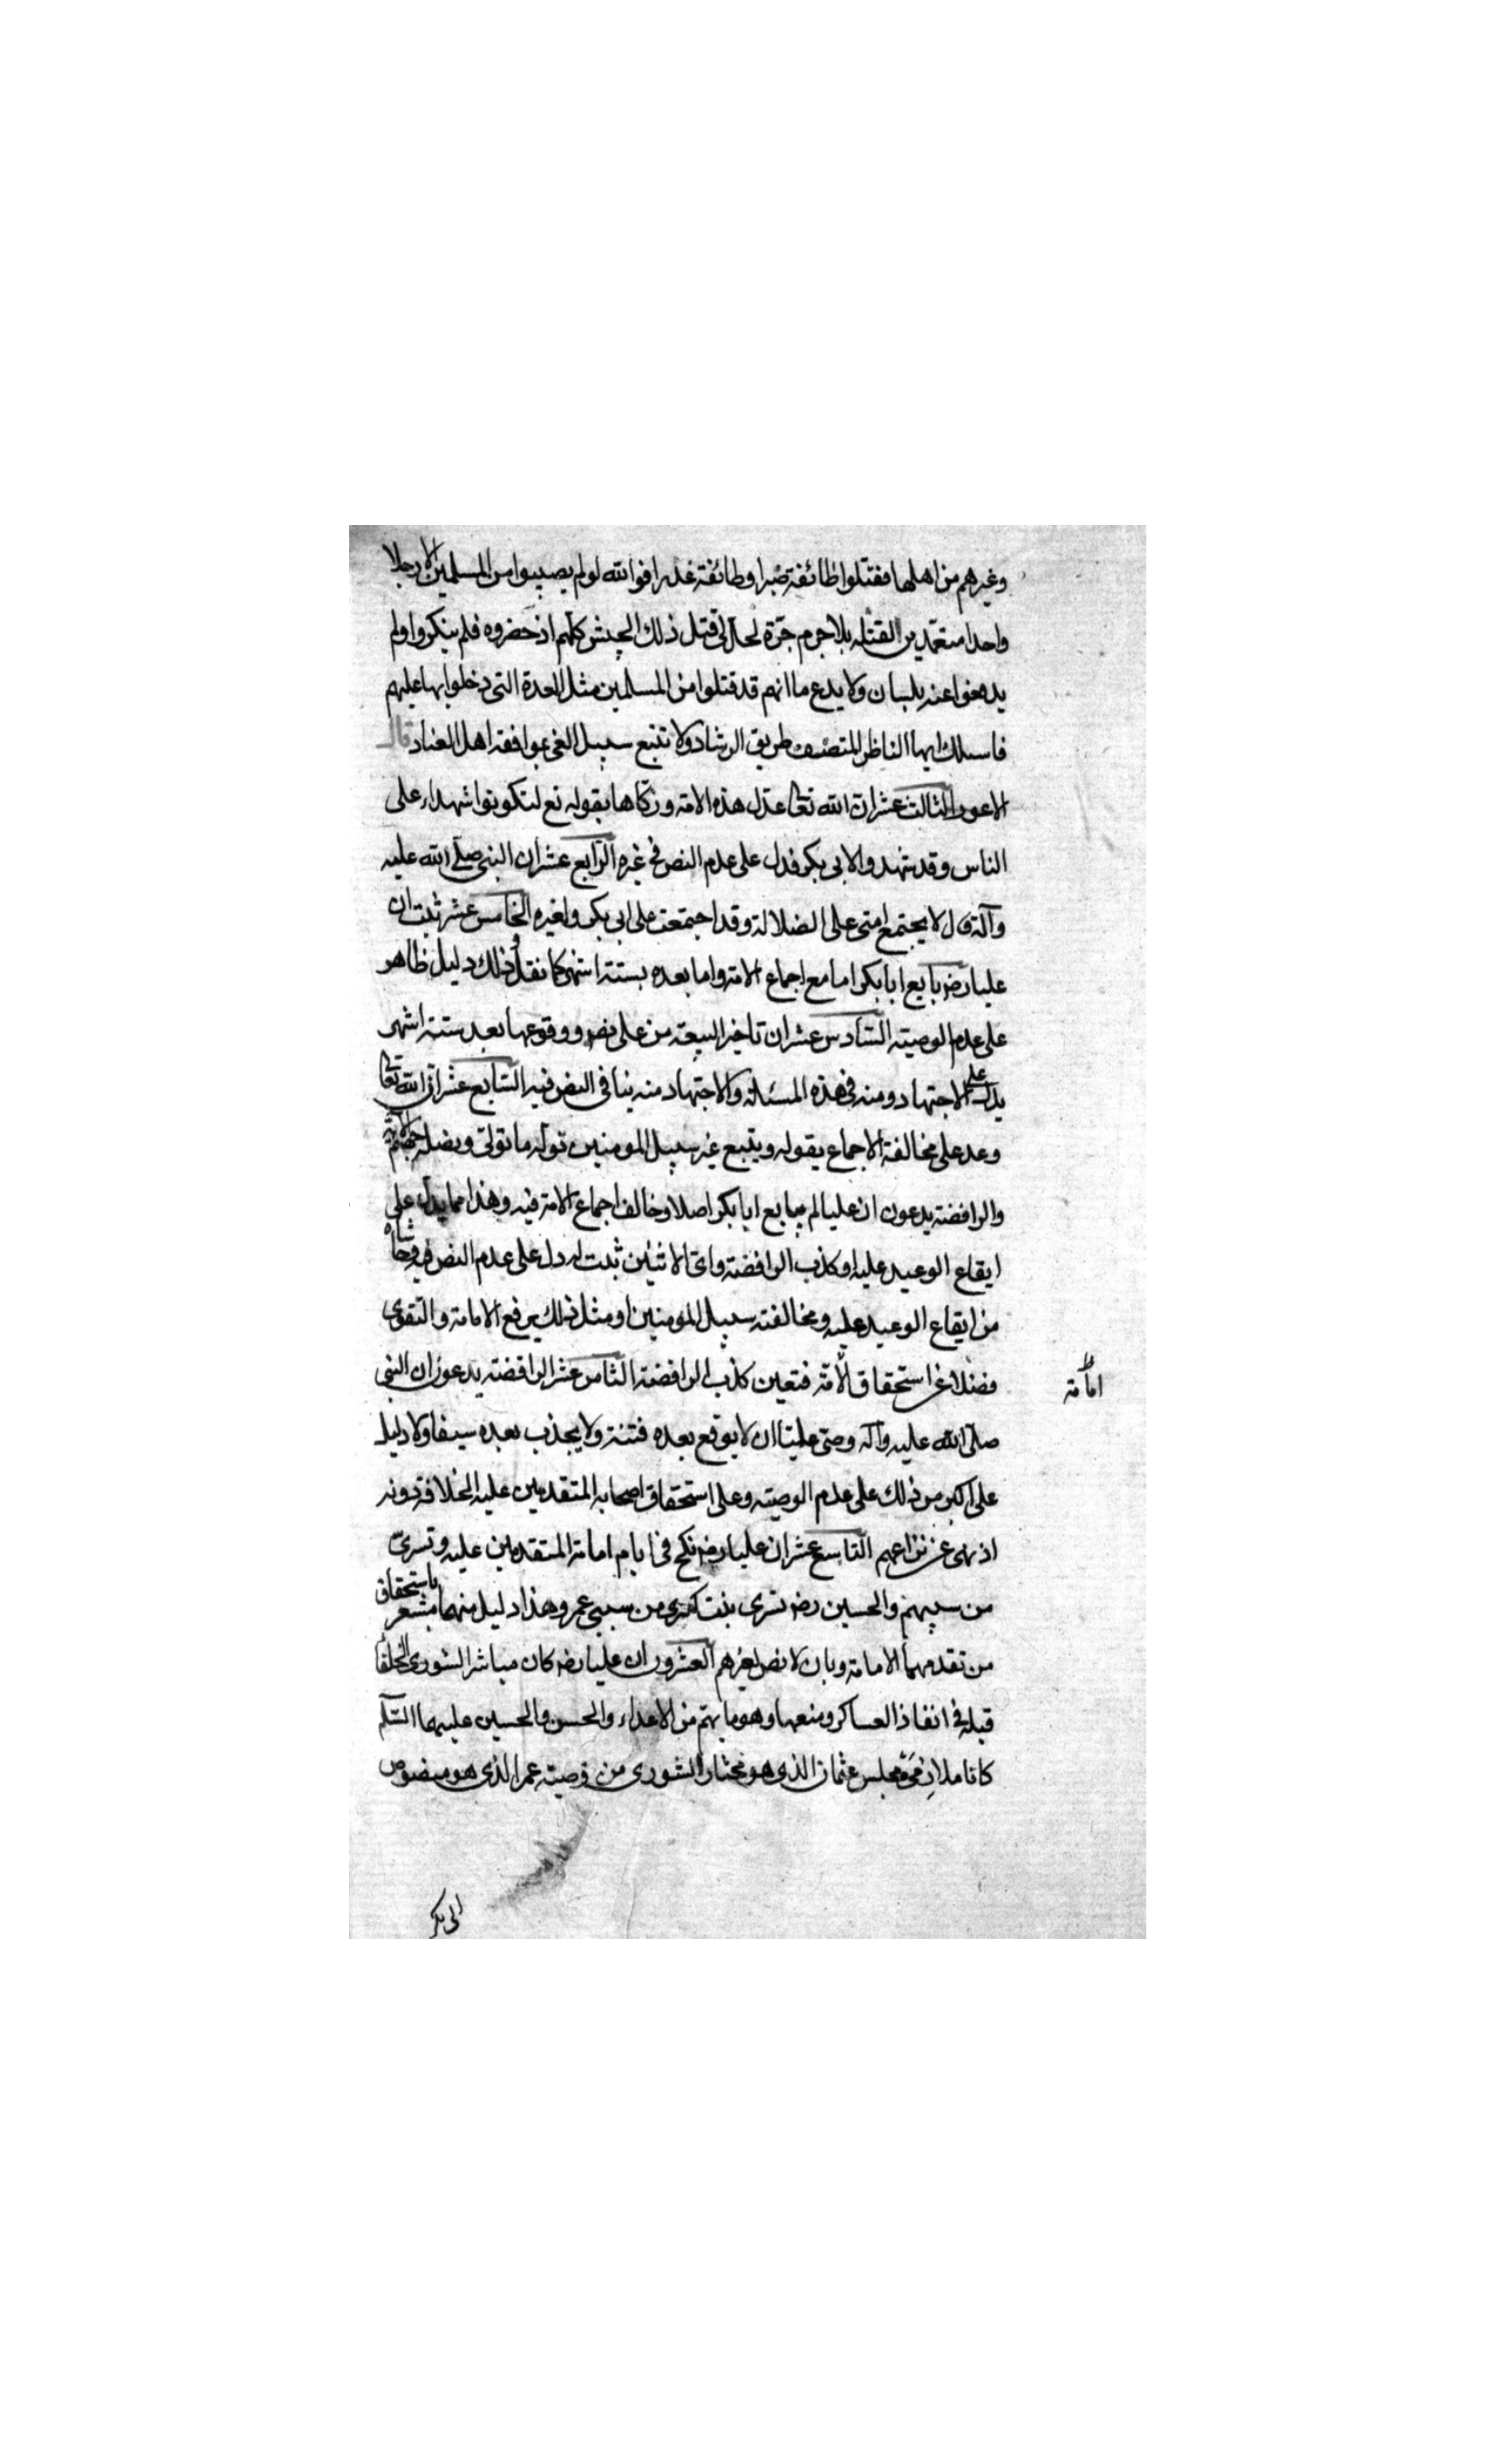 وغيرهم من اهلها فقتلوا طائفة صبرا وطائفة غدرا فوالله لو لم يصيبوا من المسلمين الا رجلا
واحدا متعمدين لقتله بلا جرم جرّه لحل لى قتل ذلك الجيش كلهم اذ حضروه فلم ينكروا ولم
يدفعوا عنه بلسان ولا يد دع ما انهم قد قتلوا من المسلمين مثل العدة التى دخلوا بها عليهم
فاسلك ايها الناظر المتصف طريق الرشاد ولا تتبع سبيل الغى بموافقه اهل العناد قال
الاعور الثالث عشر ان الله تعالى عدل هذه الامة وزكاها بقوله تع لتكونوا شهداء على
الناس وقد شهدوا لابى بكر فدل على عدم النص فى غيره الرابع عشر ان النبى صلى الله عليه
وآله قال لا يجتمع امتى على الضلالة وقد اجتمعت على ابى بكر ولغيره الخامس عشر ثبت ان
عليا رض بايع ابا بكر اما مع اجماع الامة واما بعده بستة اشهر كما نقل وذلك دليل ظاهر
على عدم الوصية السادس عشر ان تاخير البيعة من على رض ووقوعها بعد ستة اشهر
يدل على الاجتهاد ومنه فى هذه المسئلة والاجتهاد منه ينافى النص فيه السابع عشر ان الله تعالى
وعد على مخالفة الاجماع بقوله ويتبع غير سبيل المومنين نوله ما تولى ونصله جهنم الاية
والرافضة يدعون ان عليا لم يبايع ابا بكر اصلا وخالف اجماع الامة فيه وهذا مما يدل على
ايقاع الوعيد عليه او كذب الرافضة واى الاثنين ثبت له دل على عدم النص فيه وحاشاه
من ايقاع الوعيد عليه ومخالفته سبيل المومنين او مثل ذلك يرفع الامامة والتقوى
فضلا عن استحقاق الامة فتعين كذب الرافضة الثامن عشر الرافضة يدعون ان النبى
امامة
صلى الله عليه وآله وصى عليا ان لا يوقع بعده فتنة ولا يجذب بعده سيفا ولا دليل
على اكبر من ذلك على عدم الوصية وعلى استحقاق اصحابه المتقدمين عليه الخلافة دونه
اذ نهى عن نزاعهم التاسع عشر ان عليا رض نكح فى ايام امامة المتقدمين عليه وتسرى
من سبيهم والحسين رض تسرى بنت كسرى من سبى عمر وهذا دليل منهما مشعر باستحقاق
من تقدمهما الامامة وبان لا نص لغيرهم العشرون ان عليا رض كان مباشر الشورى الخلفا
قبله فى انفاذ العساكر ومنعها وهو ما يهتم من الاعداء والحسن والحسين عليهما السلم
كانا ملازمى مجلس عثمان الذى هو مختار الشورى من وصية عمر الذى هو منصوص
ابى بكر